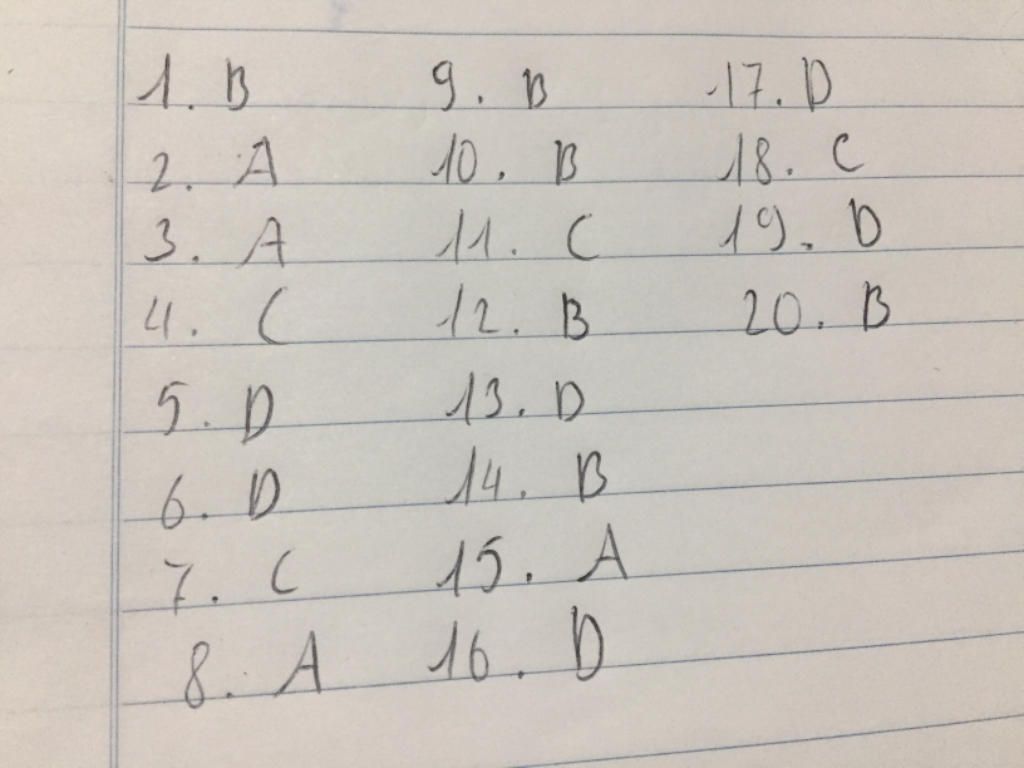 1. B
2. A
3. A
4. C
5. D
6. D
7. C
8. A
9. B
10. B
11. C
12. B
13. D
14. B
15. A
16. D
17. D
18. C
19. D
20. B